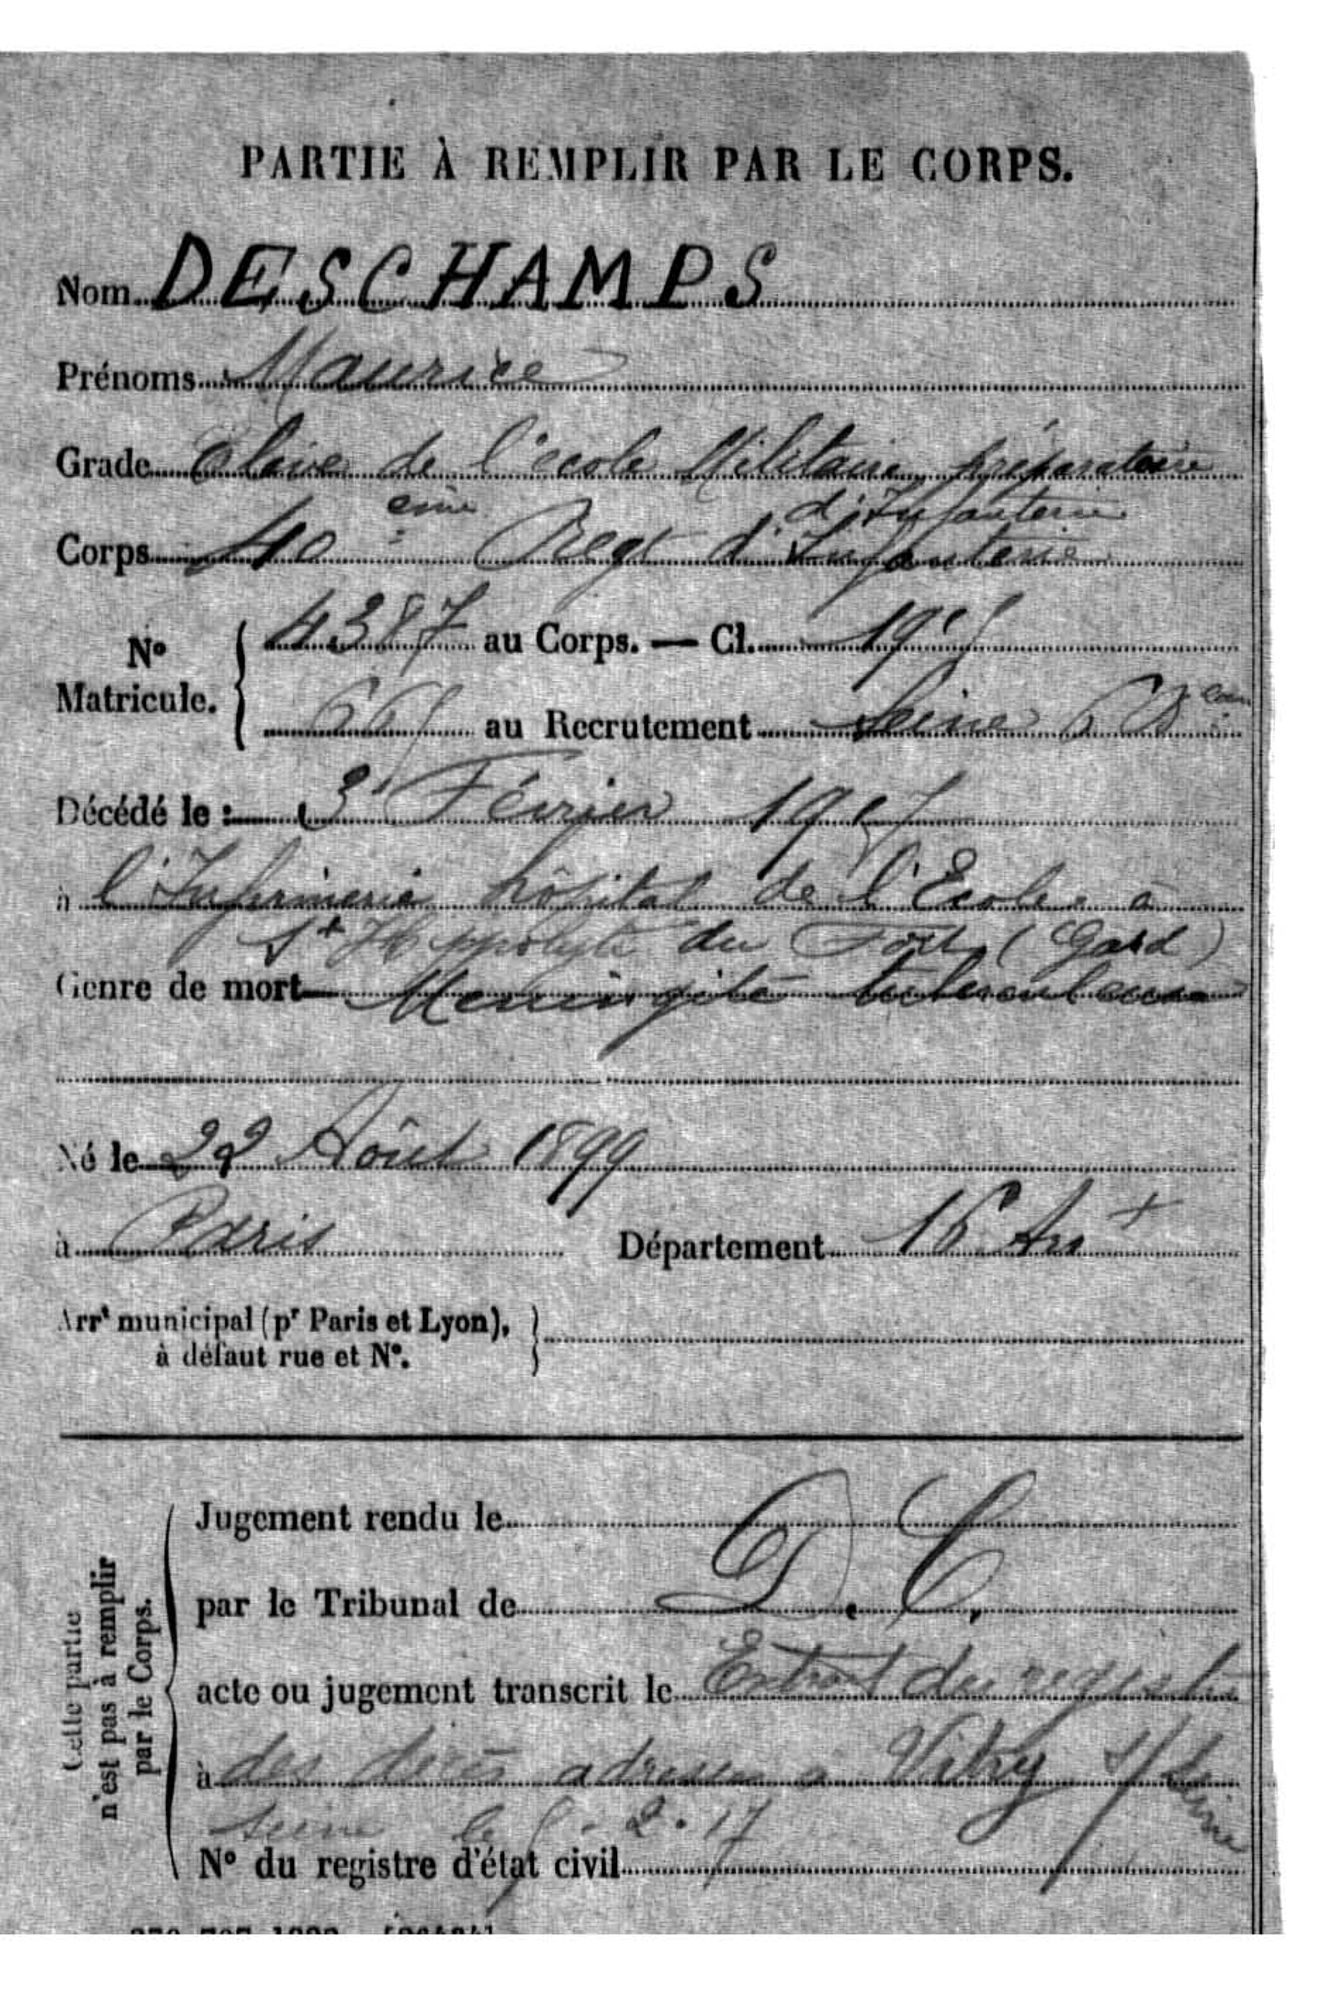 PARTIE À REMPLIR PAR LE CORPS.
Nom DESCHAMPS
Prénoms Maurice
Grade Elève de l'école Militaire préparatoire
d'Infanterie
Corps 40 eme Regt d'Infanterie
No Matricule. 4387 au Corps. — Cl. 1917
665 au Recrutement Seine 6 B eau
Décédé le : 3 Février 1917
à l'Infirmerie hôpital de l'Ecole à
St Hippolyte du Fort (Gard)
Genre de mort Meningite tuberculeuse
Né le 22 Aôut 1899
à Paris Département 16 Arr t
Arrt municipal (pr Paris et Lyon),
à défaut rue et No.
Cette partie
n'est pas à remplir
par le Corps.
Jugement rendu le
par le Tribunal de D. C.
acte ou jugement transcrit le Extrait du registre
à des décès adressé a Vitry s/ Seine
Seine le 5. 2. 17
No du registre d'état civil